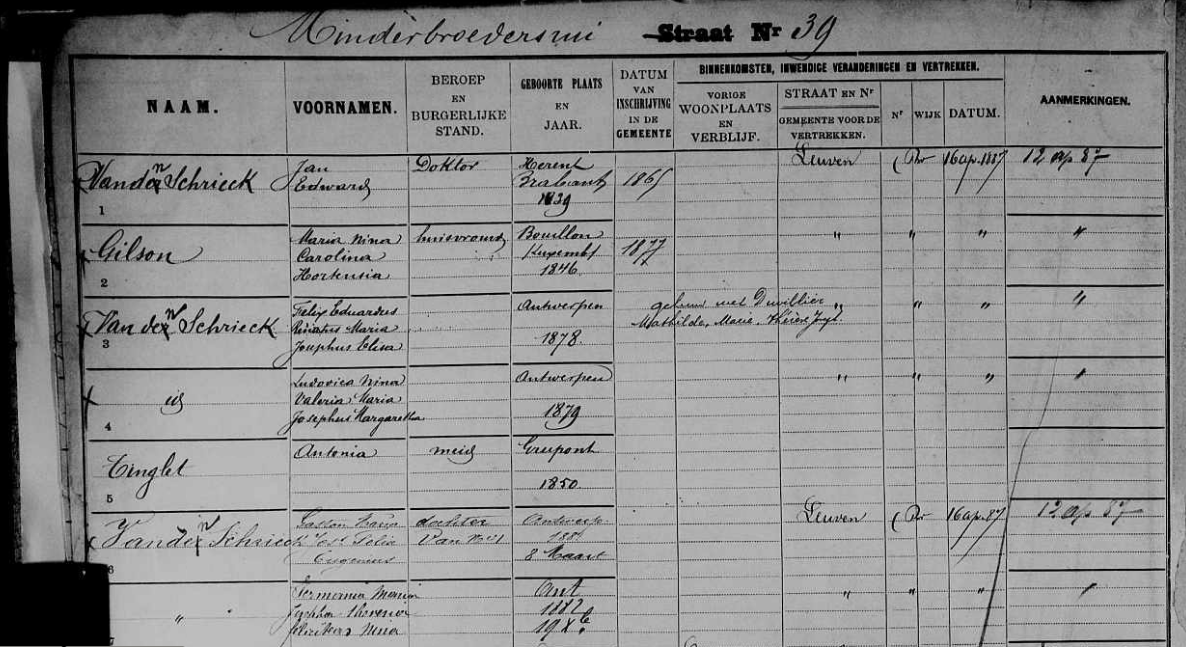 Minderbroedersrui Straat Nr 39
NAAM.
VOORNAMEN.
BEROEP
EN
BURGERLIJKE
STAND.
GEBOORTE PLAATS
EN
JAAR.
DATUM
VAN
INSCHRIJVING
IN DE
GEMEENTE
BINNENKOMSTEN, INWENDIGE VERANDERINGEN EN VERTREKKEN.
VORIGE
WOONPLAATS
EN
VERBLIJF.
STRAAT EN Nr
GEMEENTE VOOR DE
VERTREKKEN.
Nr
WIJK
DATUM.
AANMERKINGEN.
Van den Schrieck
1
Jan
Edward
Doktor
Herent
Brabant
1839
1865
Leuven
16 ap. 1887
12 ap 87
Gilson
2
Maria Nina
Carolina
Hortensia
huisvrouw
Bouillon
Luxembt
1846
1877
"
"
"
"
Van den Schrieck
3
Felix Eduardus
Maria
Josephus Elisa
Antwerpen
1878
gehuwd met Duvillier
Mathilde, Marie, Thérèse
"
"
"
"
id
4
Ludovica Nina
Valeria Maria
Josephus Margaretha
Antwerpen
1879
"
"
"
"
Tinglet
5
Antonia
meid
Grupont
1850
Van den Schrieck
6
Gaston
Felix
Eugenius
dochter
van No 1
Antwerp.
8 Maart
Leuven
16 ap. 87
12 ap 87
"
7
Germania Maria
Nina
Ant
1882
19 Xb
"
"
"
"